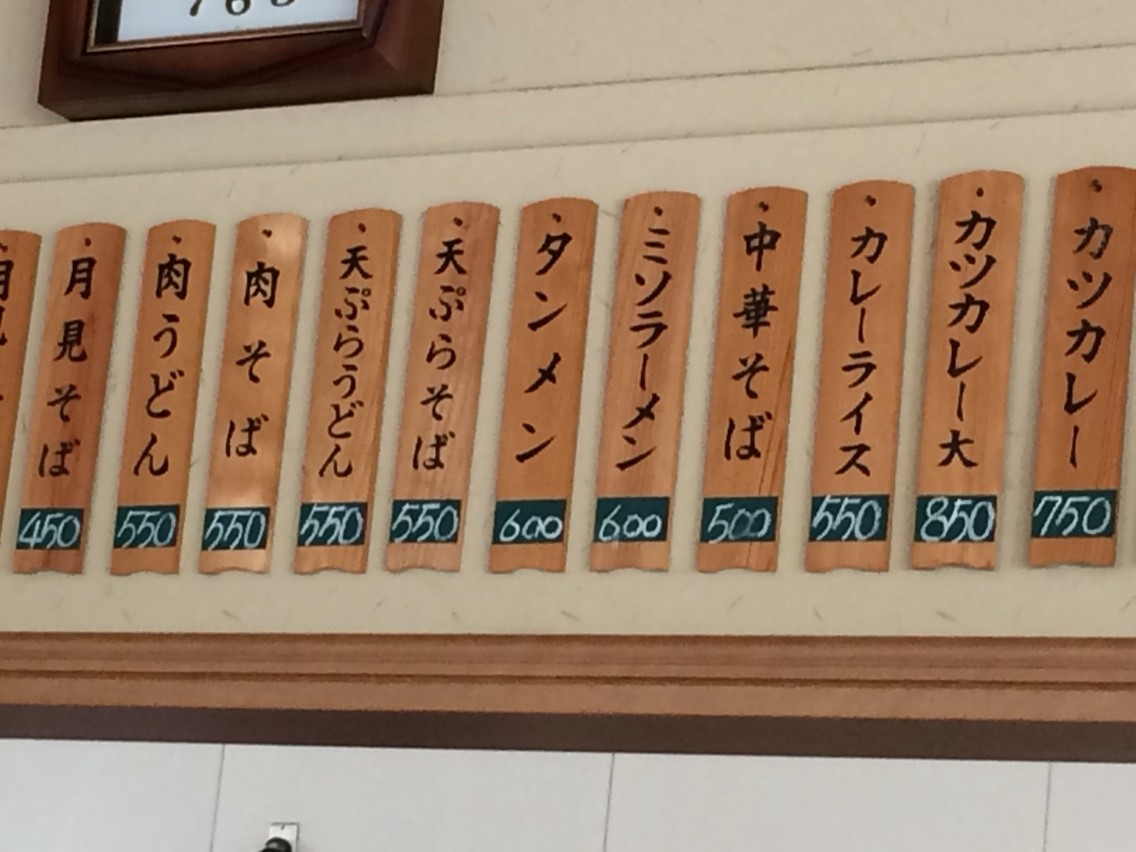 カツカレー
750
カツカレー大
850
カレーライス
550
中華そば
500
ミソラーメン
600
タンメン
600
天ぷらそば
550
天ぷらうどん
550
肉そば
550
肉うどん
550
月見そば
450